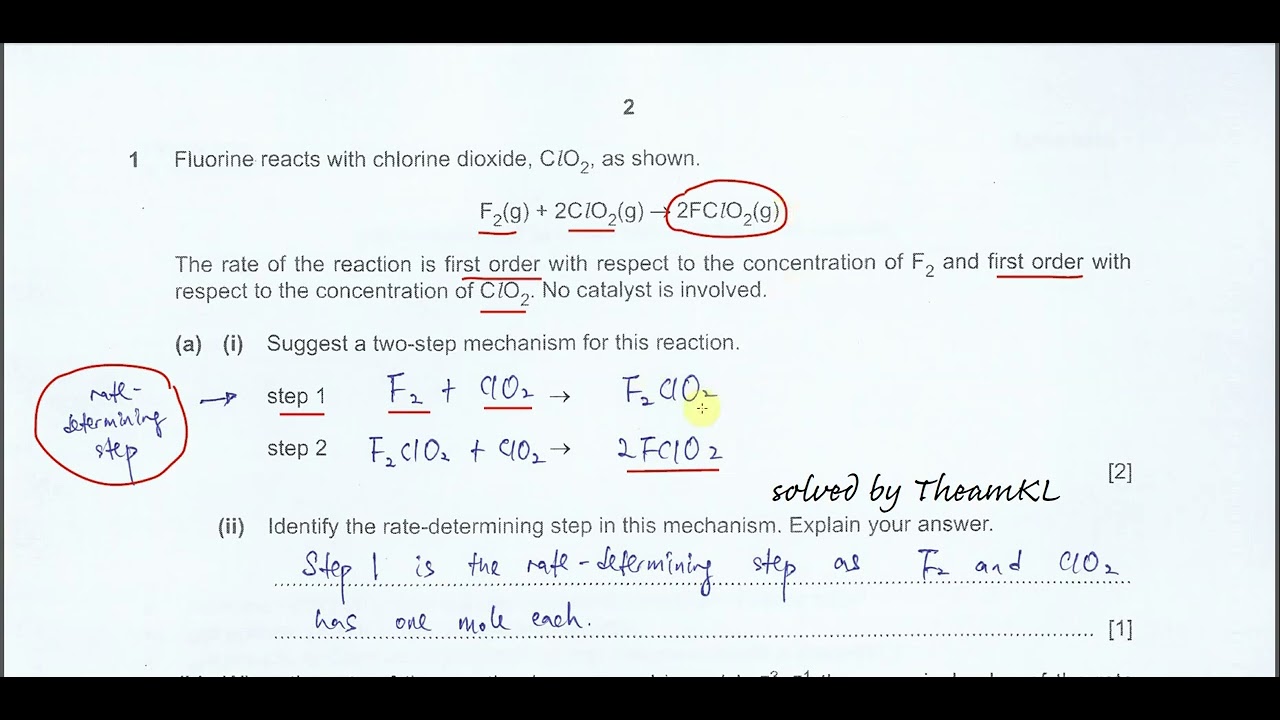 2
1 Fluorine reacts with chlorine dioxide, ClO₂, as shown.
F₂(g) + 2ClO₂(g) → 2FClO₂(g)
The rate of the reaction is first order with respect to the concentration of F₂ and first order with
respect to the concentration of ClO₂. No catalyst is involved.
(a) (i) Suggest a two-step mechanism for this reaction.
rate-
determining
step
→ step 1 F₂ + ClO₂ → F₂ClO₂
step 2 F₂ClO₂ + ClO₂ → 2FClO₂
[2]
solved by TheamKL
(ii) Identify the rate-determining step in this mechanism. Explain your answer.
Step 1 is the rate-determining step as F₂ and ClO₂
has one mole each. [1]